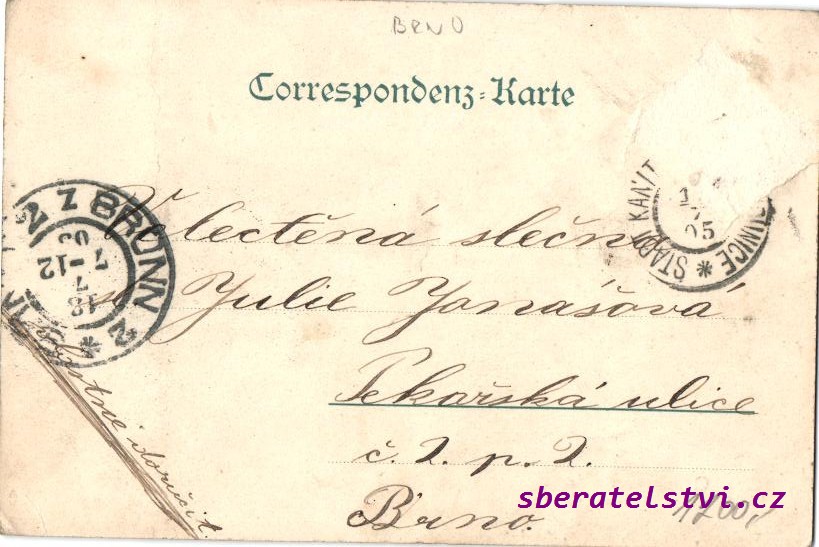 BRNO
Correspondenz-Karte
Velectěná slečna
Julie Janašová
Pekařská ulice
č. 2. p. 2.
Brno.
doručit.
BRÜNN 2 *
18
7
7-12
05
STADT KANIT
UNICE *
7
05
1200,-
sberatelstvi.cz